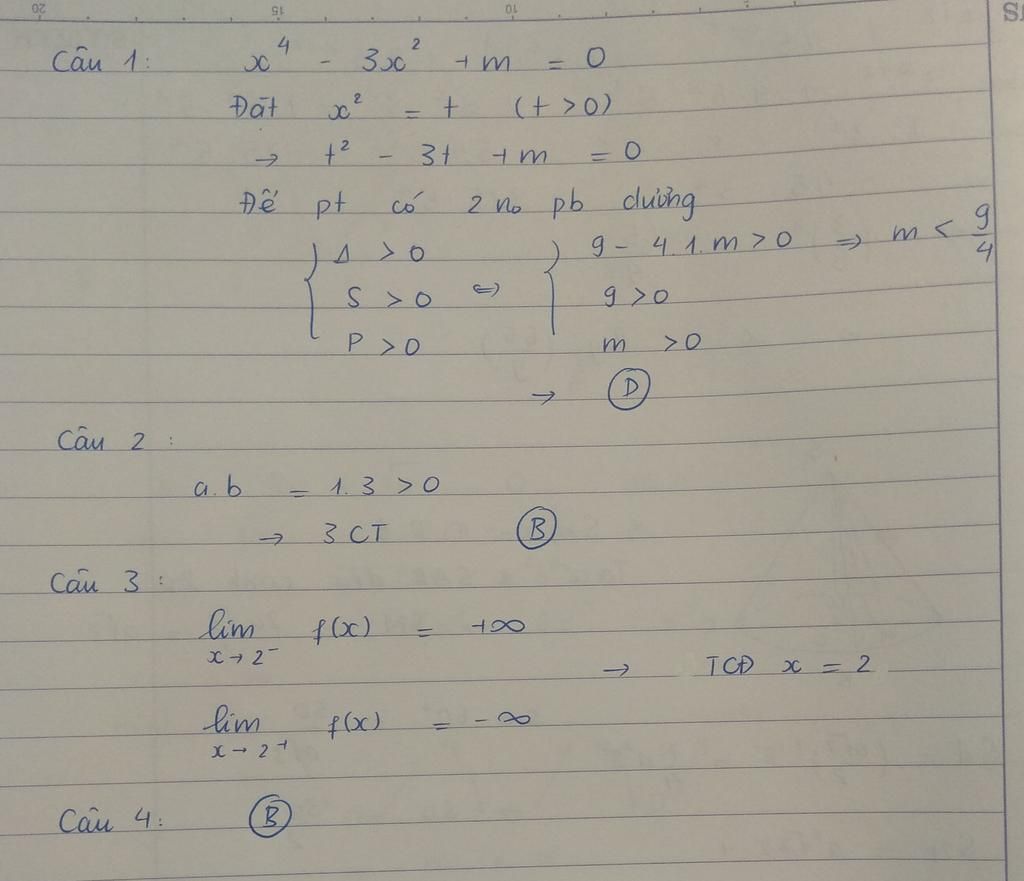 Câu 1: x⁴ - 3x² + m = 0
Đặt x² = t (t > 0)
→ t² - 3t + m = 0
Để pt có 2 no pb dương
{ Δ > 0 ⇔ { 9 - 4.1.m > 0 ⇒ m < 9/4
S > 0 9 > 0
P > 0 m > 0
→ D
Câu 2 :
a.b = 1.3 > 0
→ 3 CT B
Câu 3 :
lim x→2⁻ f(x) = +∞
→ TCĐ x = 2
lim x→2⁺ f(x) = -∞
Câu 4: B